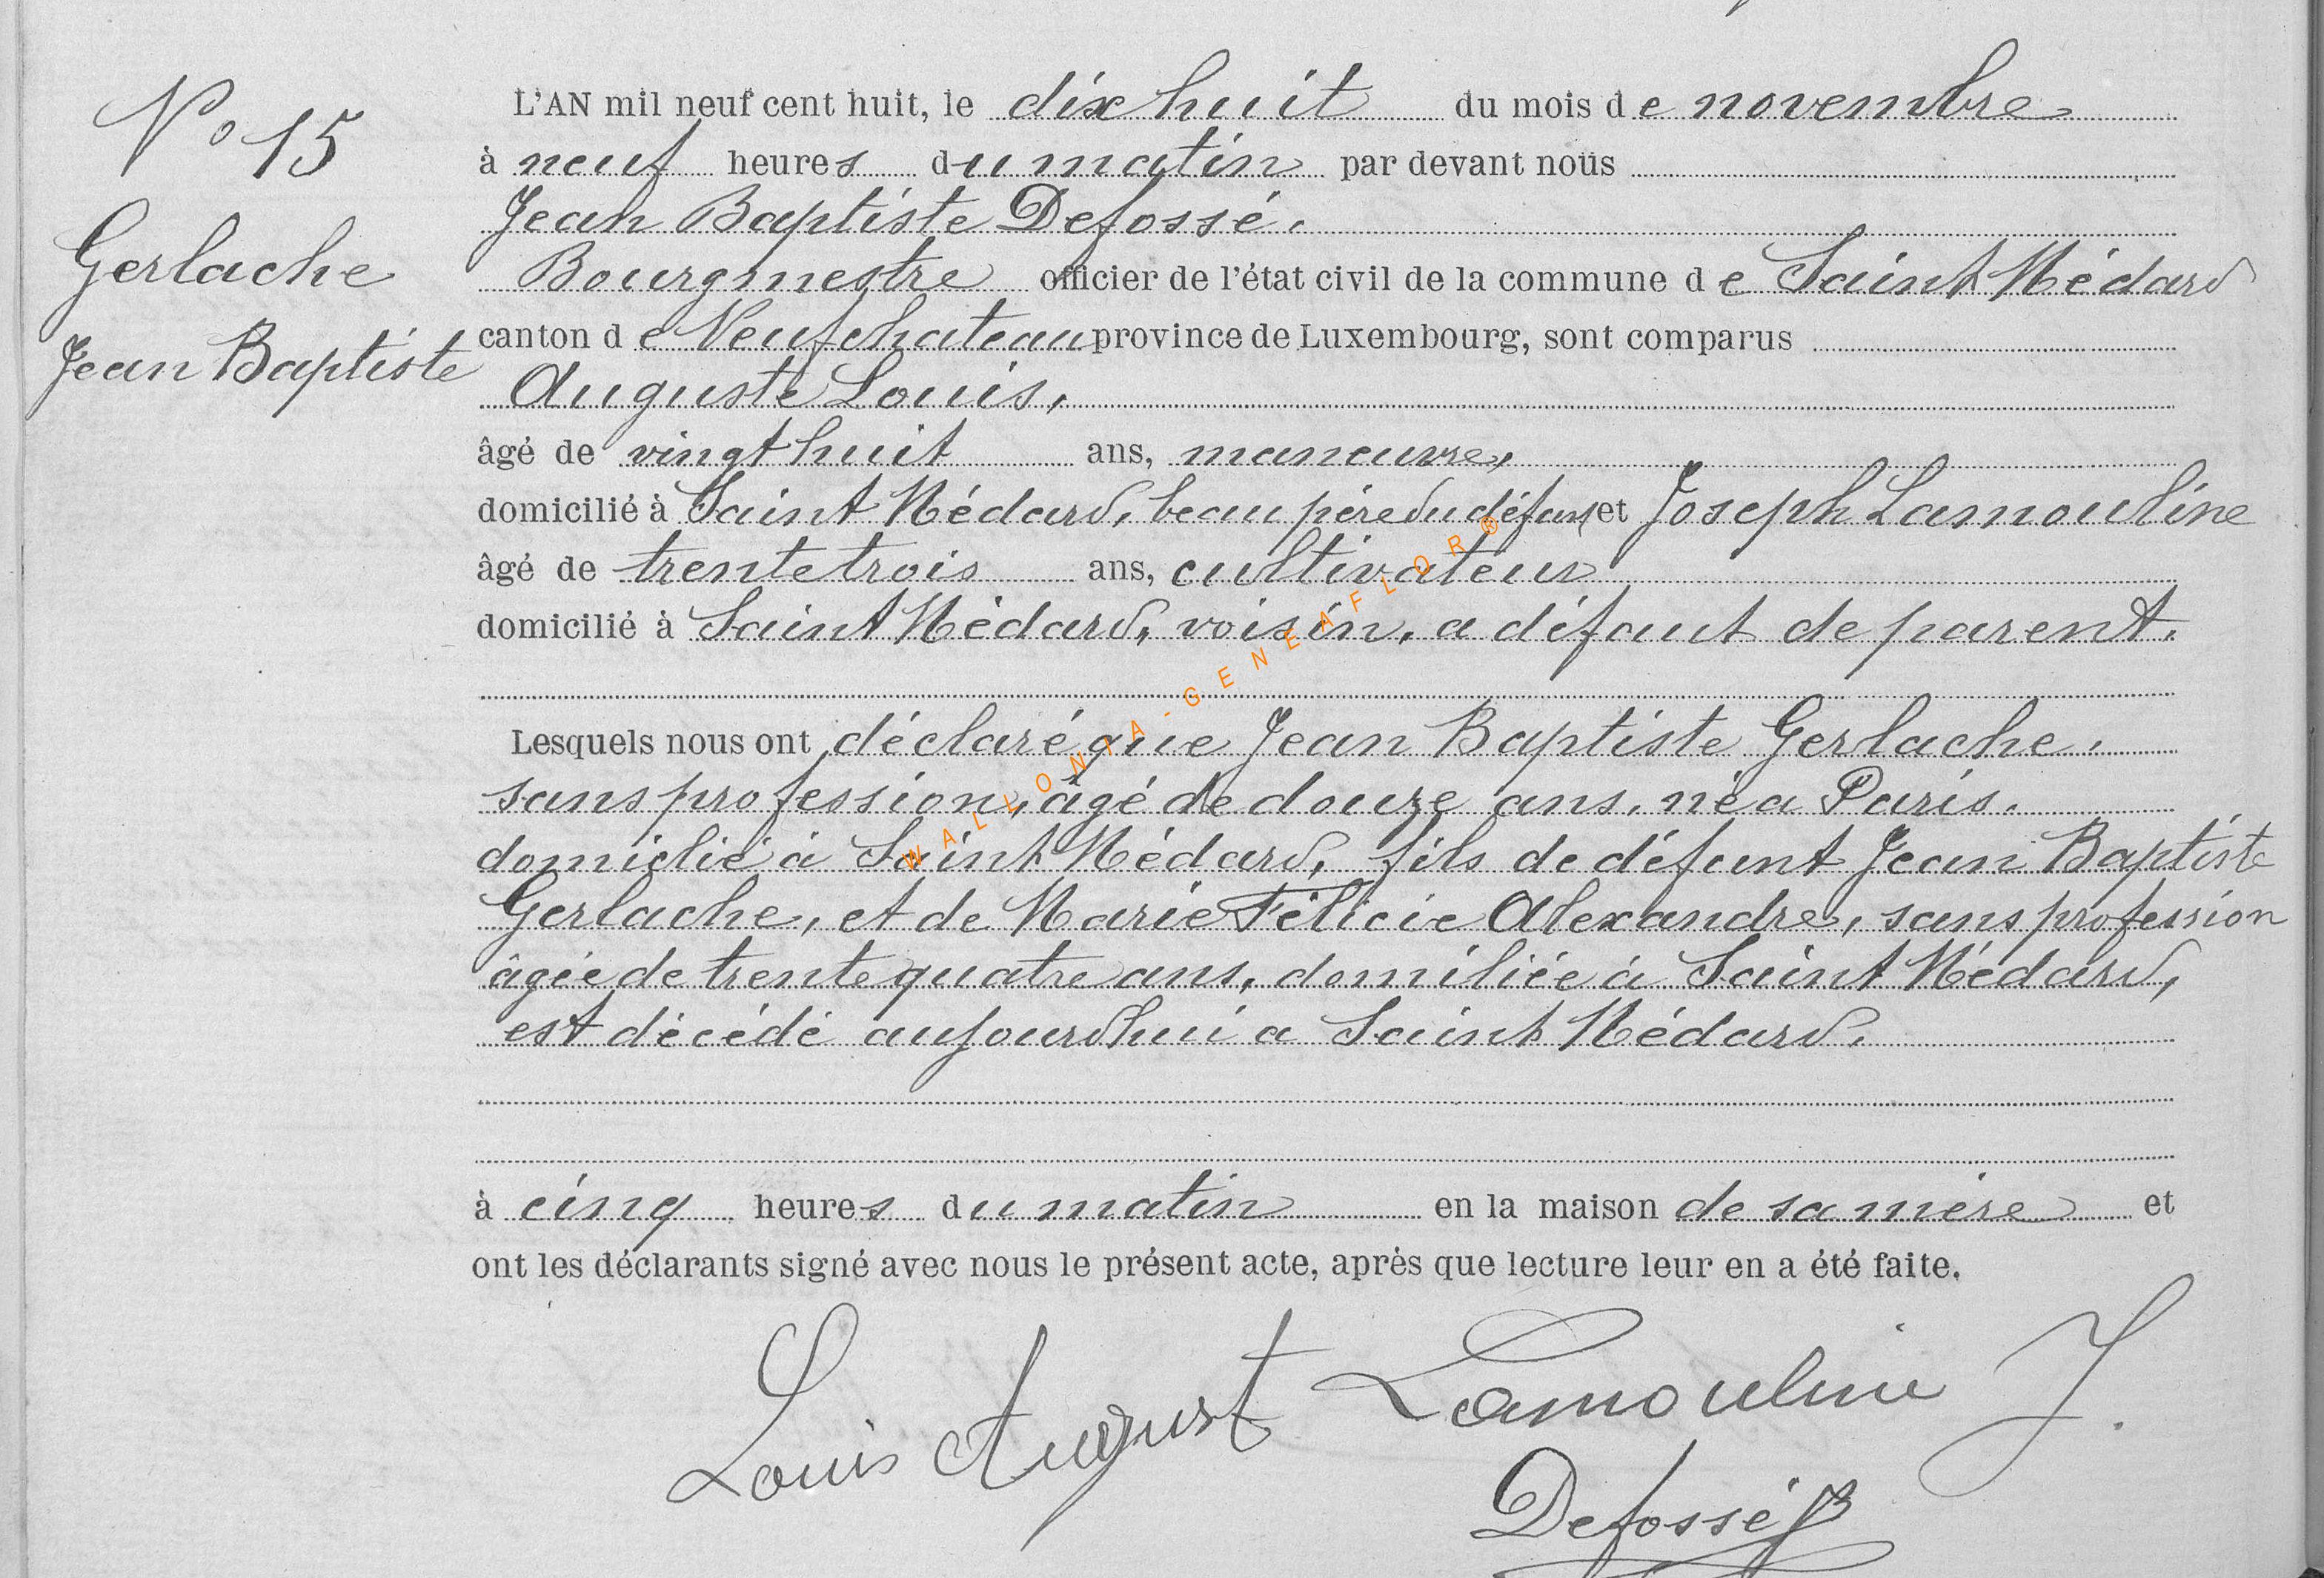 N° 15
Gerlache
Jean Baptiste
L'AN mil neuf cent huit, le dix huit du mois de novembre
à neuf heures du matin par devant nous
Jean Baptiste Defossé.
Bourgmestre officier de l'état civil de la commune de Saint Médard
canton de Neufchateau province de Luxembourg, sont comparus
Auguste Louis,
âgé de vingt huit ans, maneuvre,
domicilié à Saint Médard, beau père du défunt et Joseph Lamouline
âgé de trente trois ans, cultivateur
domicilié à Saint Médard, voisin, a défaut de parent.
Lesquels nous ont déclaré que Jean Baptiste Gerlache.
sans profession, âgé de douze ans, né a Paris.
domiclié à Saint Médard, fils de défunt Jean Baptiste
Gerlache, et de Marie Félicie Alexandre, sans profession
âgée de trente quatre ans, domiliée à Saint Médard,
est décédé aujourdhui a Saint Médard.
à cinq heures du matin en la maison de sa mère et
ont les déclarants signé avec nous le présent acte, après que lecture leur en a été faite.
Louis August Lamouline J.
Defossé JB
WALLONIA-GENEAFLOR®